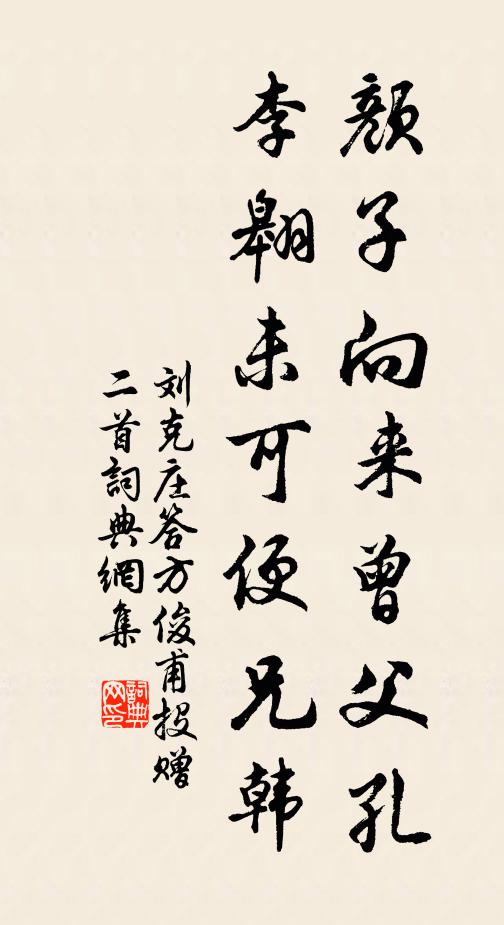 颜子向来曾父孔
李翱未可便兄韩
刘克庄答方俊甫投赠
二首詞典網集
詞典网印